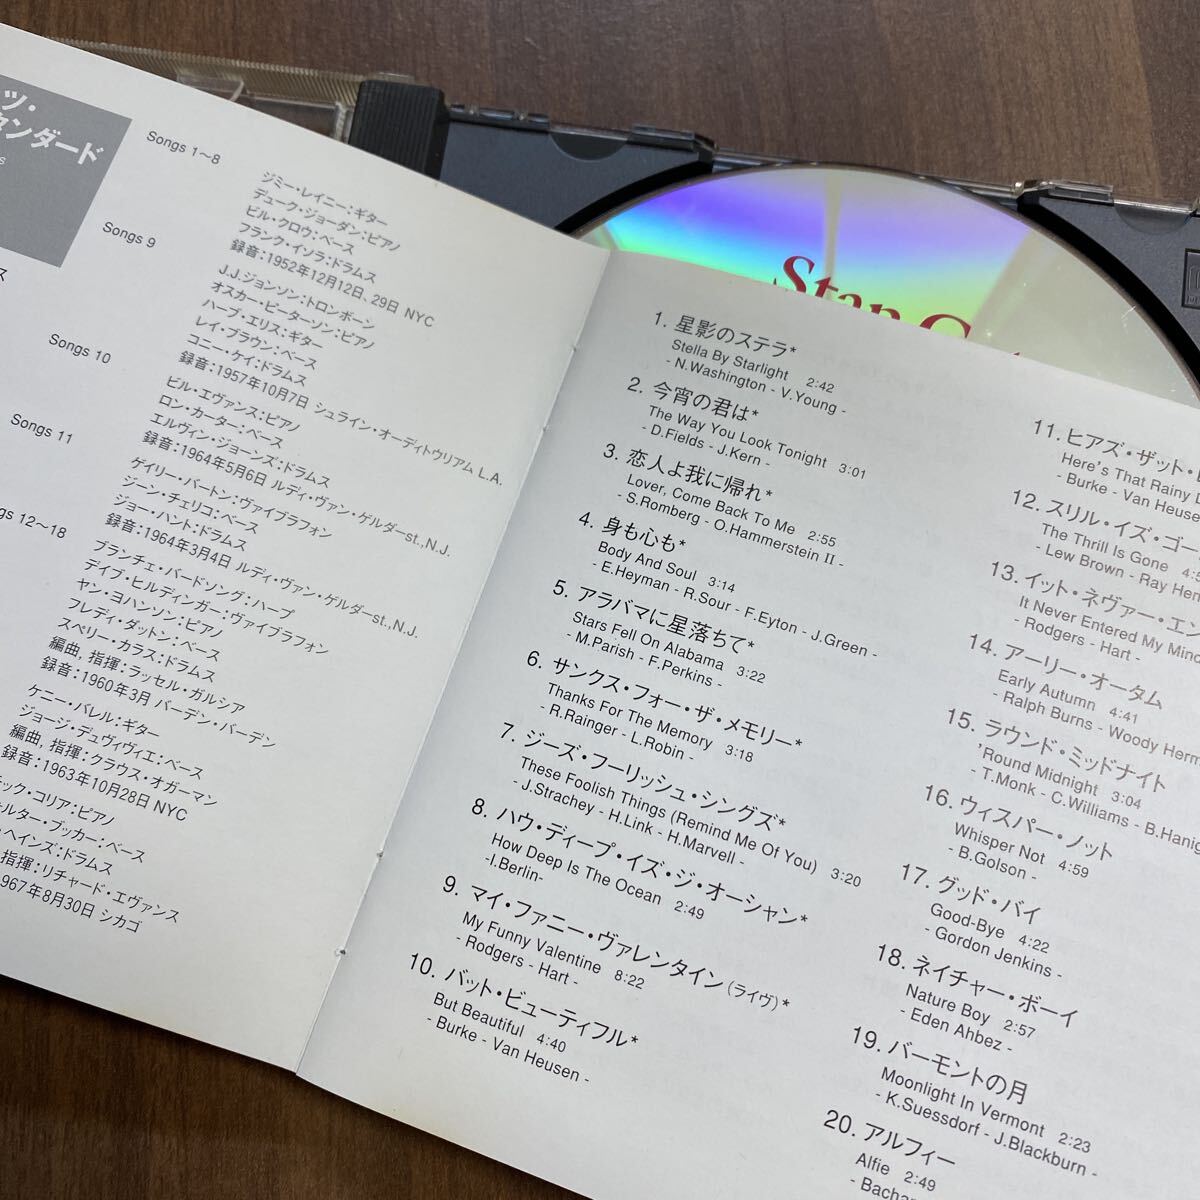 ツ・
タンダード
s
ス
Songs 1～8
ジミー・レイニー：ギター
デューク・ジョーダン：ピアノ
ビル・クロウ：ベース
フランク・イソラ：ドラムス
録音：1952年12月12日、29日 NYC
Songs 9
J.J.ジョンソン：トロンボーン
オスカー・ピーターソン：ピアノ
ハーブ・エリス：ギター
レイ・ブラウン：ベース
コニー・ケイ：ドラムス
録音：1957年10月7日 シュライン・オーディトリウム L.A.
Songs 10
ビル・エヴァンス：ピアノ
ロン・カーター：ベース
エルヴィン・ジョーンズ：ドラムス
録音：1964年5月6日 ルディ・ヴァン・ゲルダーst.,N.J.
Songs 11
ゲイリー・バートン：ヴァイブラフォン
ジーン・チェリコ：ベース
ジョー・ハント：ドラムス
録音：1964年3月4日 ルディ・ヴァン・ゲルダーst.,N.J.
gs 12～18
ブランチェ・バードソング：ハープ
デイブ・ヒルディンガー：ヴァイブラフォン
ヤン・ヨハンソン：ピアノ
フレディ・ダットン：ベース
スペリー・カラス：ドラムス
編曲, 指揮：ラッセル・ガルシア
録音：1960年3月 バーデン・バーデン
ケニー・バレル：ギター
ジョージ・デュヴィヴィエ：ベース
編曲, 指揮：クラウス・オガーマン
録音：1963年10月28日 NYC
ック・コリア：ピアノ
ルター・ブッカー：ベース
・ヘインズ：ドラムス
指揮：リチャード・エヴァンス
967年8月30日 シカゴ
Stan G
1. 星影のステラ*
Stella By Starlight 2:42
- N.Washington - V.Young -
2. 今宵の君は*
The Way You Look Tonight 3:01
- D.Fields - J.Kern -
3. 恋人よ我に帰れ*
Lover, Come Back To Me 2:55
- S.Romberg - O.Hammerstein II -
4. 身も心も*
Body And Soul 3:14
- E.Heyman - R.Sour - F.Eyton - J.Green -
5. アラバマに星落ちて*
Stars Fell On Alabama 3:22
- M.Parish - F.Perkins -
6. サンクス・フォー・ザ・メモリー*
Thanks For The Memory 3:18
- R.Rainger - L.Robin -
7. ジーズ・フーリッシュ・シングズ*
These Foolish Things (Remind Me Of You) 3:20
- J.Strachey - H.Link - H.Marvell -
8. ハウ・ディープ・イズ・ジ・オーシャン*
How Deep Is The Ocean 2:49
-I.Berlin-
9. マイ・ファニー・ヴァレンタイン（ライヴ）*
My Funny Valentine 8:22
- Rodgers - Hart -
10. バット・ビューティフル*
But Beautiful 4:40
- Burke - Van Heusen -
11. ヒアズ・ザット・
Here's That Rainy D
- Burke - Van Heuse
12. スリル・イズ・ゴー
The Thrill Is Gone 4:
- Lew Brown - Ray Hen
13. イット・ネヴァー・エン
It Never Entered My Mind
- Rodgers - Hart -
14. アーリー・オータム
Early Autumn 4:41
- Ralph Burns - Woody Herm
15. ラウンド・ミッドナイト
'Round Midnight 3:04
- T.Monk - C.Williams - B.Hanig
16. ウィスパー・ノット
Whisper Not 4:59
- B.Golson -
17. グッド・バイ
Good-Bye 4:22
- Gordon Jenkins -
18. ネイチャー・ボーイ
Nature Boy 2:57
- Eden Ahbez -
19. バーモントの月
Moonlight In Vermont 2:23
- K.Suessdorf - J.Blackburn -
20. アルフィー
Alfie 2:49
- Bachar